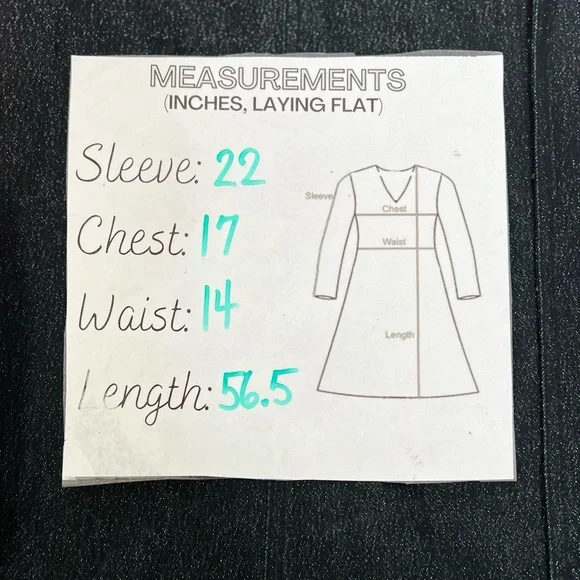 MEASUREMENTS
(INCHES, LAYING FLAT)
Sleeve: 22
Chest: 17
Waist: 14
Length: 56.5
Sleeve
Chest
Waist
Length